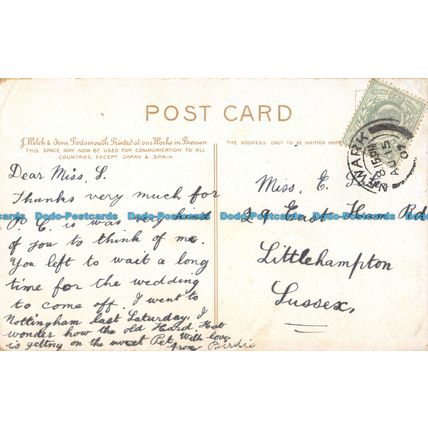 POST CARD
J. Welch & Sons, Portsmouth. Printed at our Works in Bremen
THIS SPACE MAY NOW BE USED FOR COMMUNICATION TO ALL
COUNTRIES, EXCEPT JAPAN & SPAIN.
THE ADDRESS ONLY TO BE WRITTEN HERE
NEWARK
8 15 PM
AU 15
07
Dear Miss. S.
Thanks very much for
P. C. is was very kind
of you to think of me.
You left to wait a long
time for the wedding
to come off. I went to
Nottingham last Saturday. I
wonder how the old Heard
is getting on the sweet Pet. With love
from Birdie
Miss. E.
29 East Ham Rd
Littlehampton
Sussex.
Dodo-Postcards Dodo-Postcards Dodo-Postcards Dodo-Postcards Dodo-Postcards